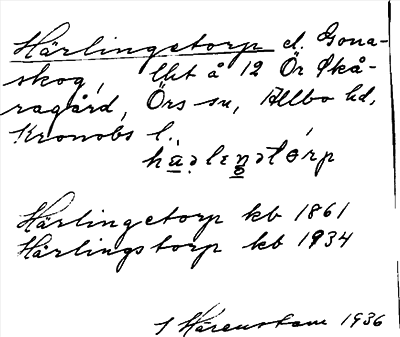 Härlingetorp el. Gona-
skog, lht å 12 Ör Skå-
ragård, Örs sn, Allbo hd,
Kronobs l.
Härlingetorp kb 1861
Härlingstorp kb 1934
1936